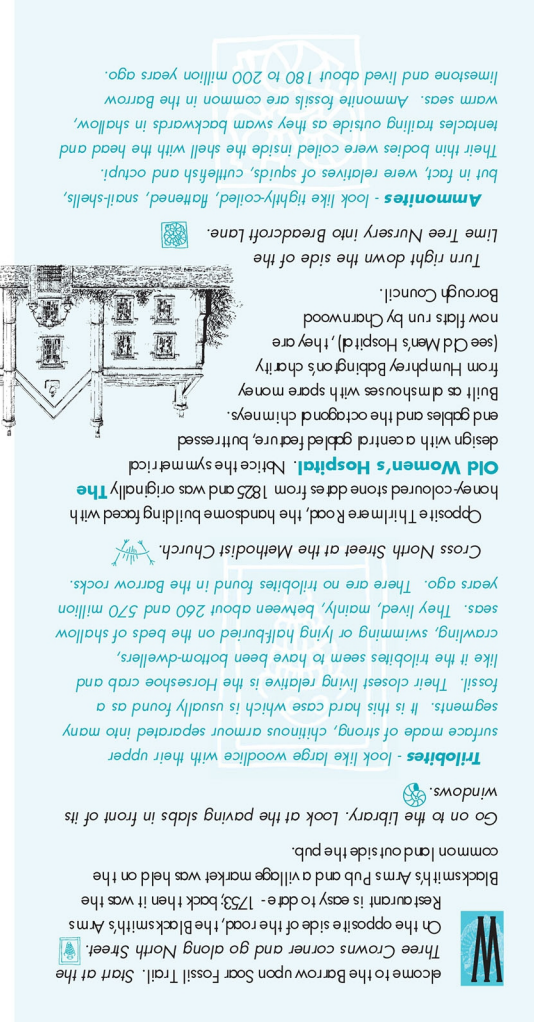 Welcome to the Barrow upon Soar Fossil Trail. Start at the
Three Crowns corner and go along North Street.
On the opposite side of the road, the Blacksmith's Arms
Restaurant is easy to date - 1753; back then it was the
Blacksmith's Arms Pub and a village market was held on the
common land outside the pub.
Go on to the Library. Look at the paving slabs in front of its
windows.
Trilobites - look like large woodlice with their upper
surface made of strong, chitinous armour separated into many
segments. It is this hard case which is usually found as a
fossil. Their closest living relative is the Horseshoe crab and
like it the trilobites seem to have been bottom-dwellers,
crawling, swimming or lying half-buried on the beds of shallow
seas. They lived, mainly, between about 260 and 570 million
years ago. There are no trilobites found in the Barrow rocks.
Cross North Street at the Methodist Church.
Opposite Thirlmere Road, the handsome building faced with
honey-coloured stone dates from 1825 and was originally The
Old Women's Hospital. Notice the symmetrical
design with a central gabled feature, buttressed
end gables and the octagonal chimneys.
Built as almshouses with spare money
from Humphrey Babington's charity
(see Old Men's Hospital), they are
now flats run by Charnwood
Borough Council.
Turn right down the side of the
Lime Tree Nursery into Breadcroft Lane.
Ammonites - look like tightly-coiled, flattened, snail-shells,
but in fact, were relatives of squids, cuttlefish and octupi.
Their thin bodies were coiled inside the shell with the head and
tentacles trailing outside as they swam backwards in shallow,
warm seas. Ammonite fossils are common in the Barrow
limestone and lived about 180 to 200 million years ago.